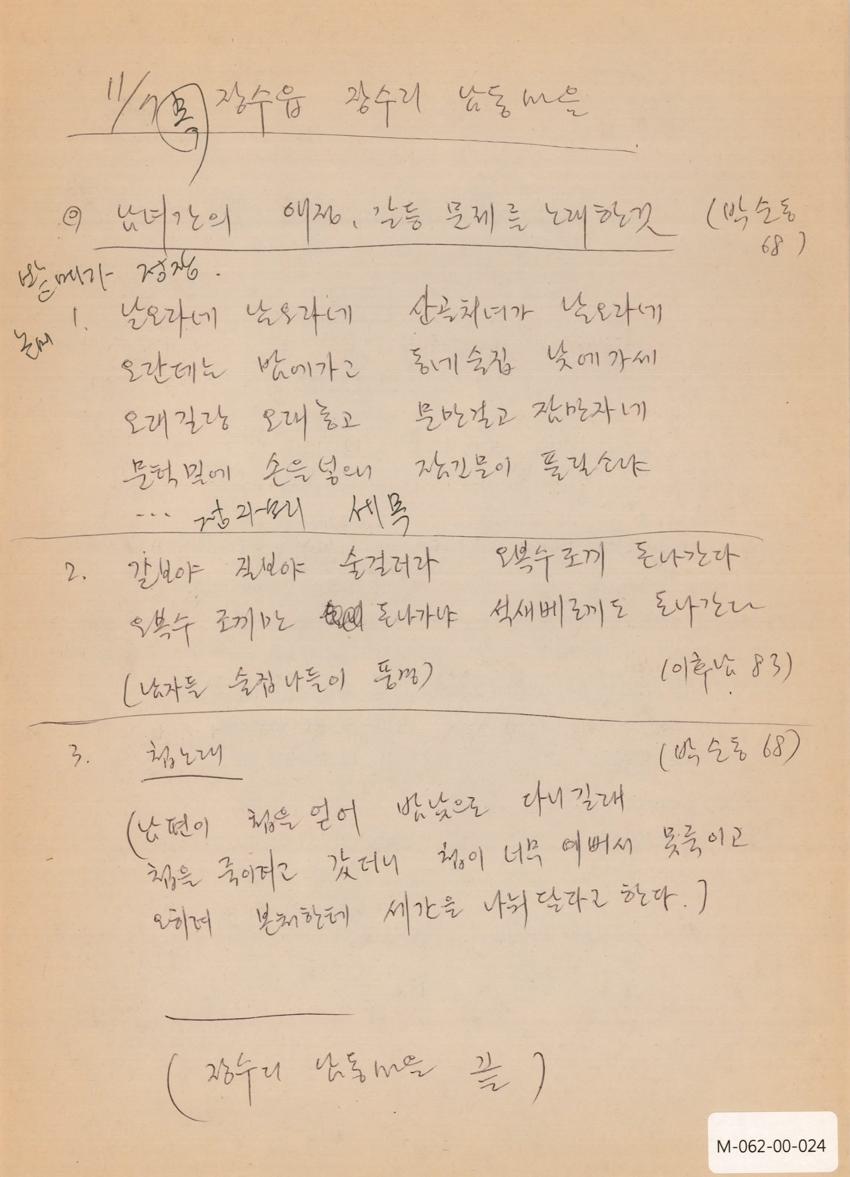 11/7 목 장수읍 장수리 남동마을
◎ 남녀간의 애정, 갈등 문제를 노래한것 (박순동 68)
밭매기
논매
1. 날오라네 날오라네 산골처녀가 날오라네
오란데는 밤에가고 동네술집 낮에가세
오래길랑 오래놓고 문만걸고 잠만자네
문턱밑에 손을넣으니 잠긴문이 풀릴소냐
...
2. 갈보야 질보야 술걸러라 오복수조끼 돈나간다
오복수 조끼만 돈나가냐 석새베조끼도 돈나간다
(남자들 술집나들이 풍경) (이후남 83)
3. 첩노래 (박순동 68)
(남편이 첩을 얻어 밤낮으로 다니길래
첩을 죽이려고 갔더니 첩이 너무 예뻐서 못죽이고
오히려 본처한테 세간을 나눠달라고 한다.)
(장수리 남동마을 끝)
M-062-00-024